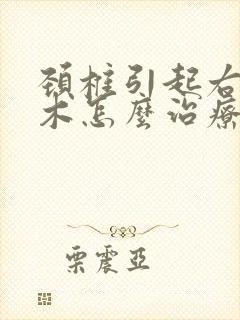 頚椎引起右
木怎麼治療
栗震亞